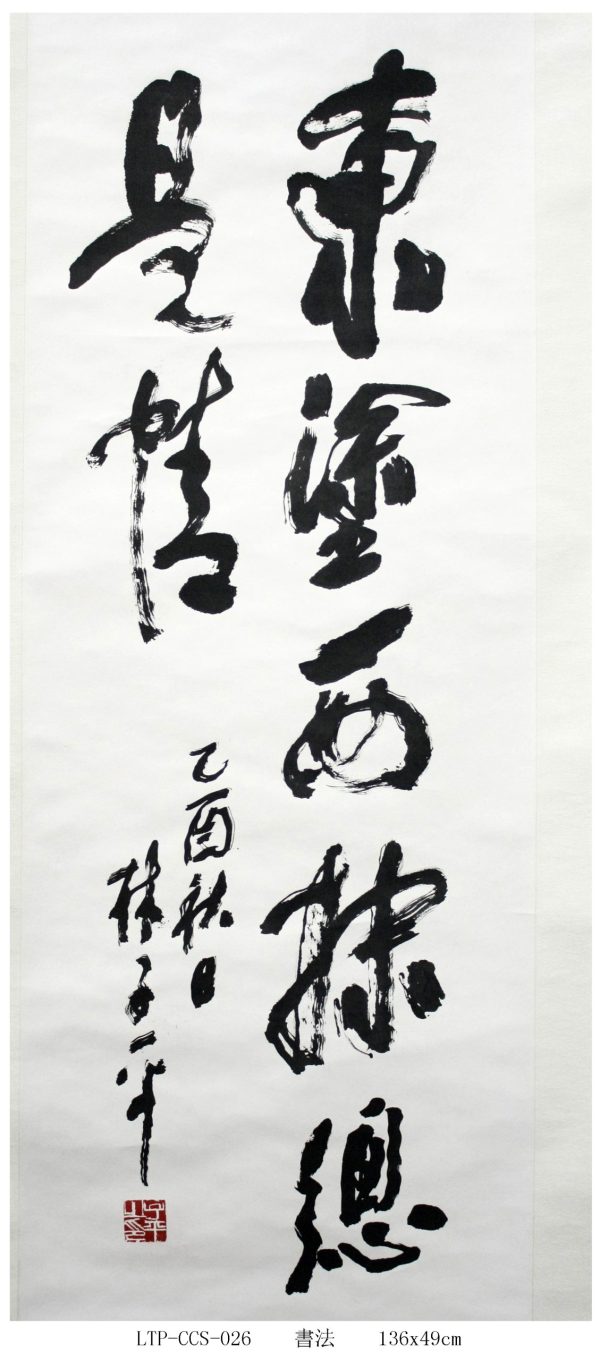 東塗西抹總
是情
乙酉秋日
林子平
子平之印
LTP-CCS-026 書法 136x49cm